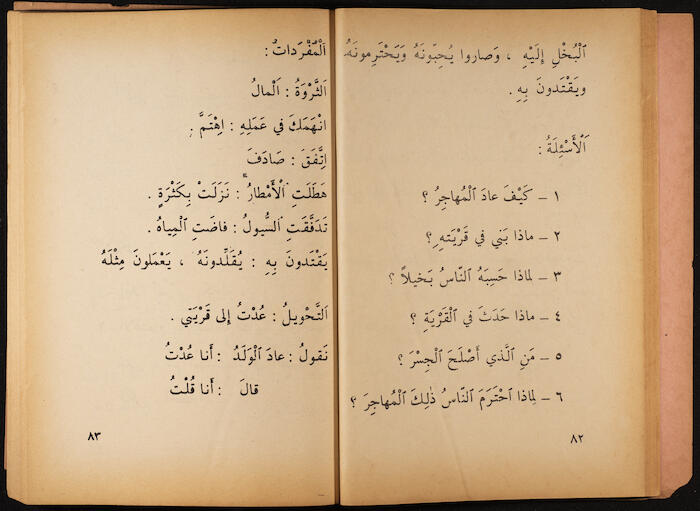 ٱلْبُخْلِ إِلَيْهِ ، وَصاروا يُحِبّونَهُ وَيَحْتَرِمونَهُ
وَيَقْتَدونَ بِهِ .
اَلْأَسْئِلَةُ :
١ – كَيْفَ عادَ ٱلْمُهاجِرُ ؟
٢ – ماذا بَنى في قَرْيَتِهِ ؟
٣ – لِماذا حَسِبَهُ ٱلنّاسُ بَخيلاً ؟
٤ – ماذا حَدَثَ في ٱلْقَرْيَةِ ؟
٥ – مَنِ ٱلَّذي أَصْلَحَ ٱلْجِسْرَ ؟
٦ – لِماذا ٱحْتَرَمَ ٱلنّاسُ ذٰلِكَ ٱلْمُهاجِرَ ؟
٨٢
اَلْمُفْرَداتُ :
اَلثَّرْوَةُ : اَلْمالُ
انْهَمَكَ في عَمَلِهِ : اِهْتَمَّ .
اِتَّفَقَ : صَادَفَ
هَطَلَتِ ٱلْأَمْطارُ : نَزَلَتْ بِكَثْرَةٍ .
تَدَفَّقَتِ ٱلسُّيولُ : فاضَتِ ٱلْمِياهُ .
يَقْتَدونَ بِهِ : يُقَلِّدونَهُ ، يَعْمَلونَ مِثْلَهُ
اَلتَّحْويلُ : عُدْتُ إِلى قَرْيَتي .
نَقولُ : عادَ ٱلْوَلَدُ : أَنا عُدْتُ
قالَ : أَنا قُلْتُ
٨٣